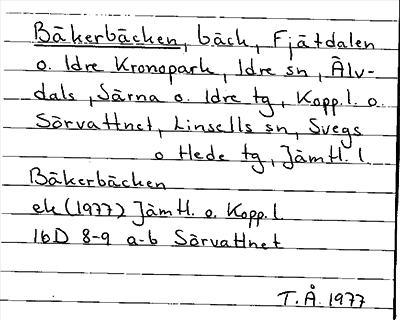 Bäkerbäcken, bäck, Fjätdalen
o. Idre Kronopark, Idre sn, Älv-
dals, Särna o. Idre tg, Kopp. l. o.
Sörvattnet, Linsells sn, Svegs
o Hede tg, Jämtl. l.
Bäkerbäcken
ek (1977) Jämtl. o. Kopp. l.
16D 8-9 a-b Sörvattnet
T. Å. 1977